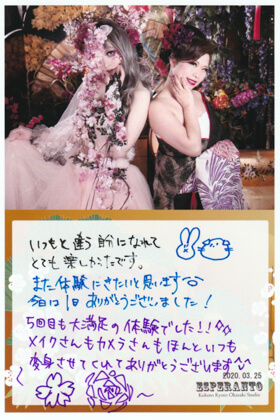 いつもと違う自分になれて
とても楽しかったです。
また体験にきたいと思います
今日は1日ありがとうございました！
5回目も大満足の体験でした!!
メイクさんもカメラさんもほんといつも
変身させてくれてありがとうございます^^
2020.03.25
ESPERANTO
Kokoro Kyoto Okazaki Studio